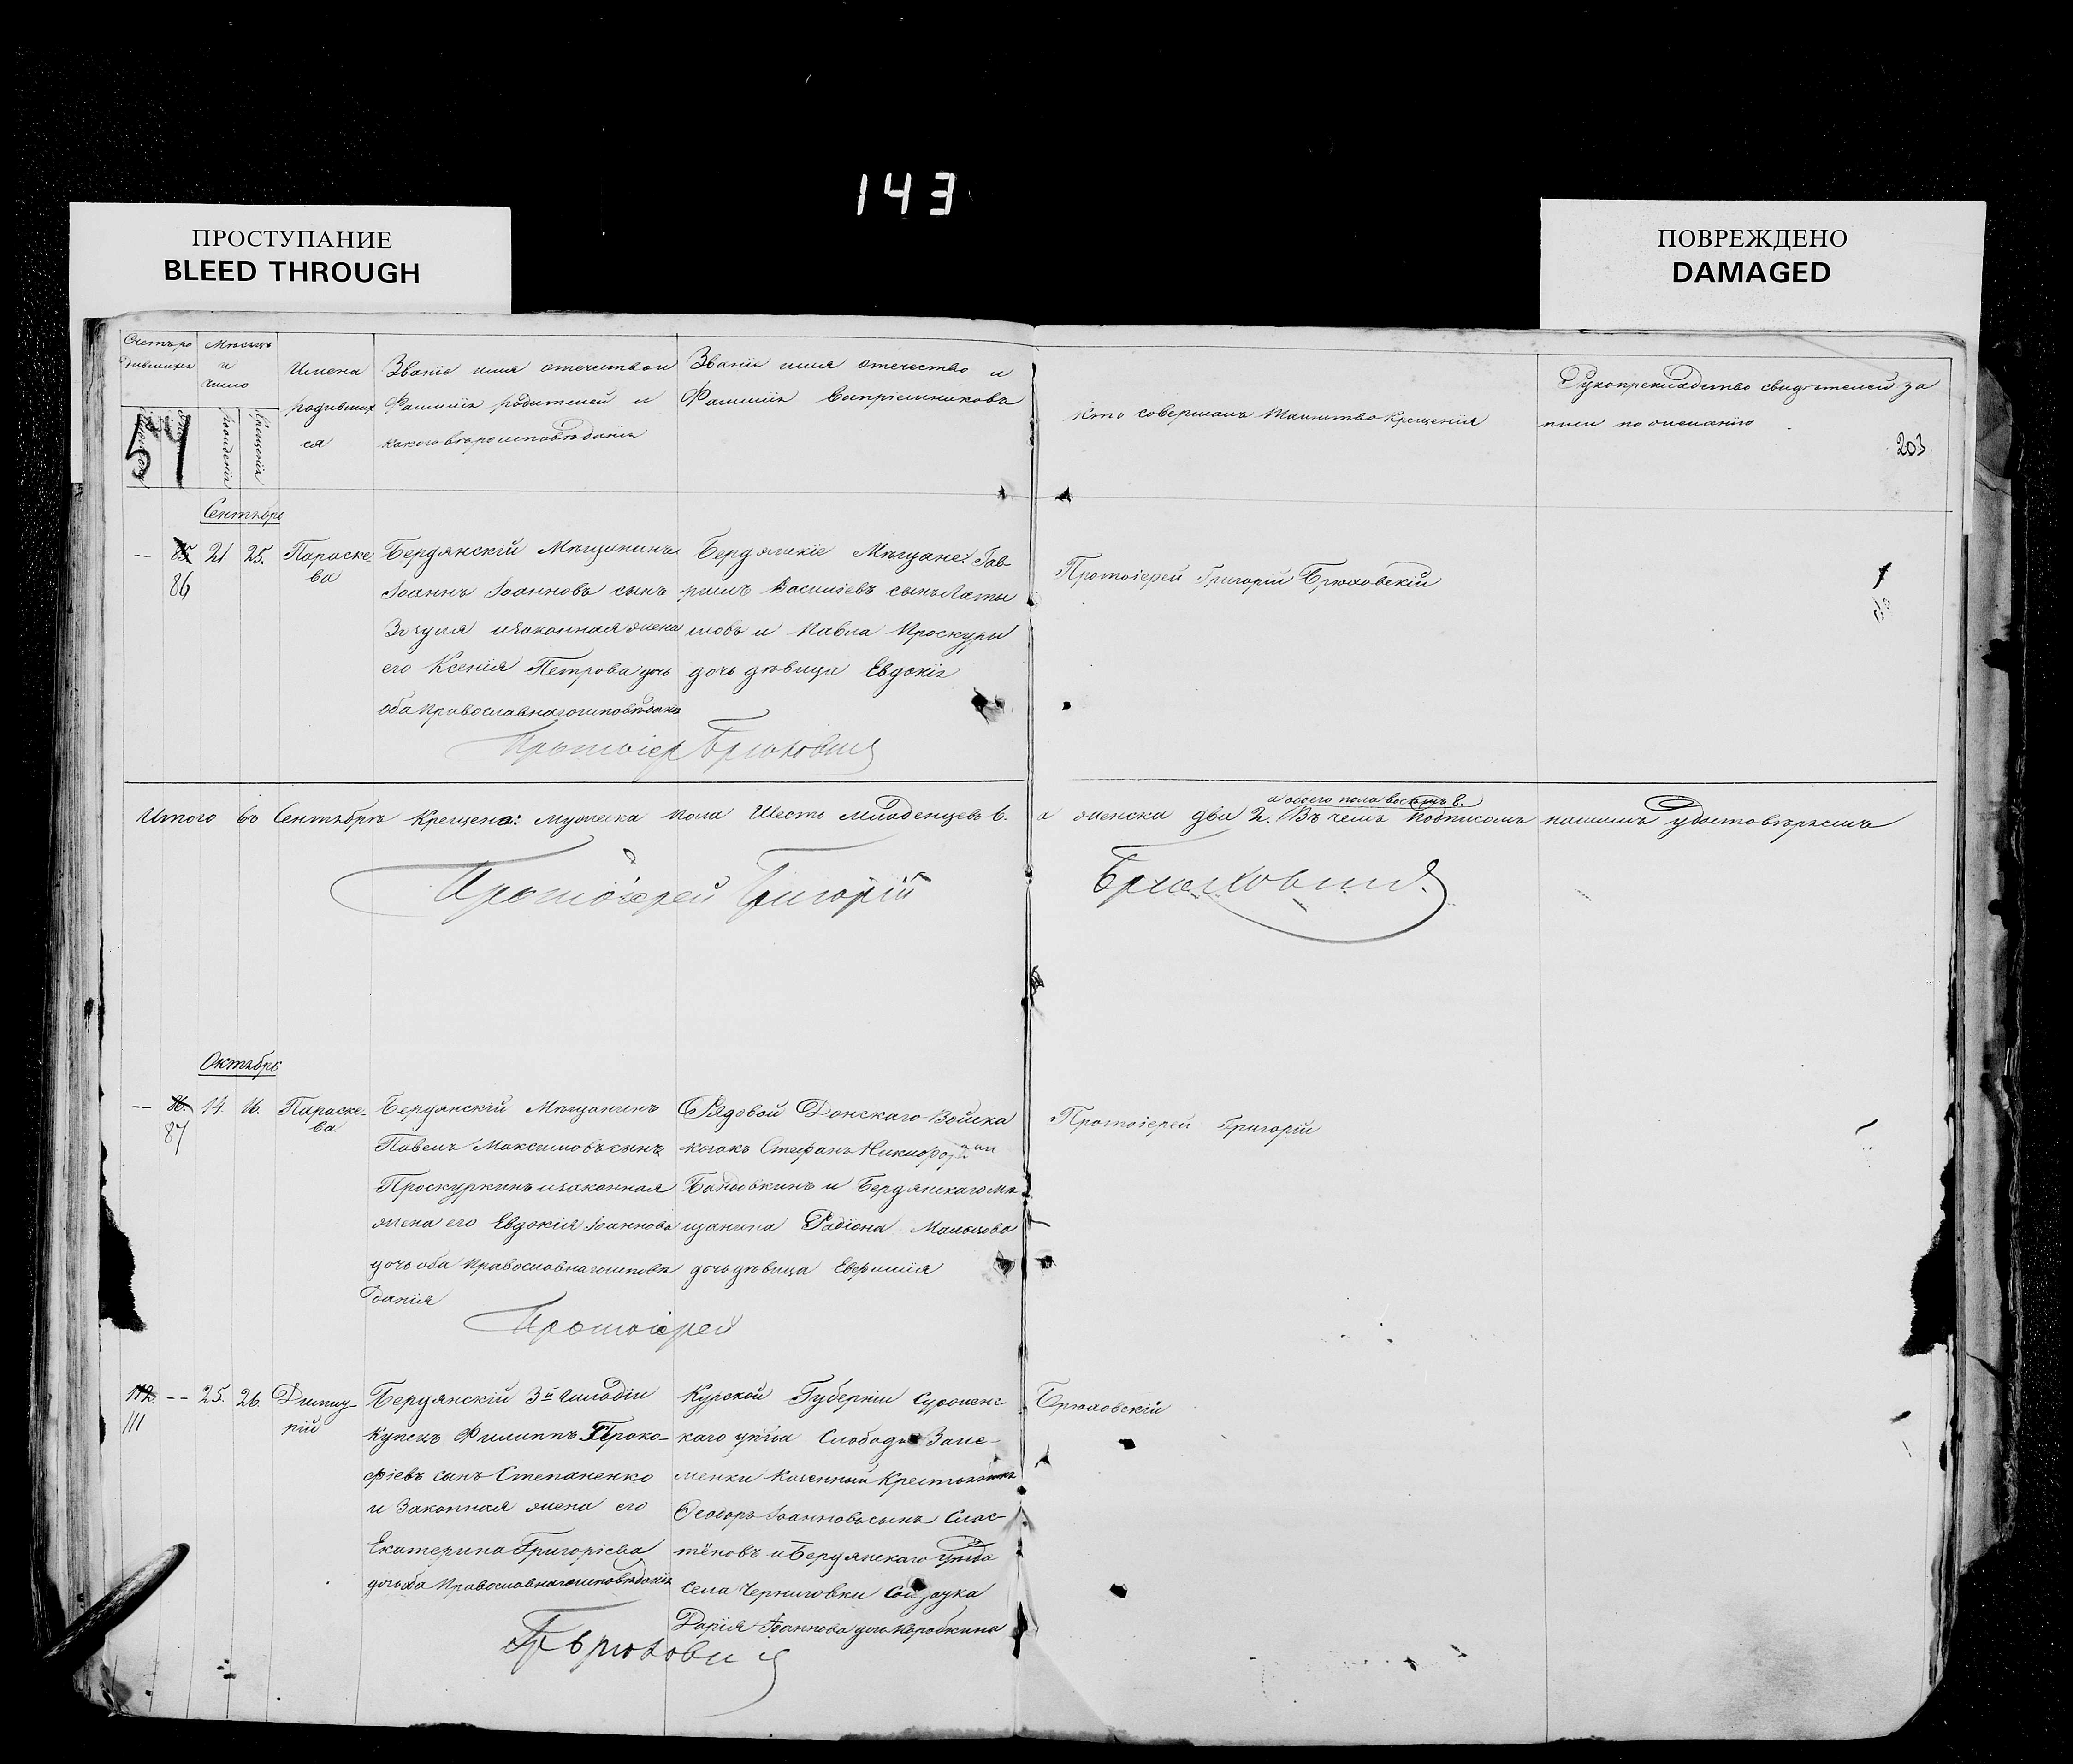 143
ПРОСТУПАНИЕ
BLEED THROUGH
ПОВРЕЖДЕНО
DAMAGED
Мѣсяцъ
и
число
Имена
родивших
ся
Званіе имя отечество и
Фамилія родителей и
какого вѣроисповѣданія
Званіе имя отечество и
Фамилія Воспріемниковъ
Кто совершалъ Таинство Крещенія
Рукоприкладство свидѣтелей за
писи по желанію
203
54
рожденія
крещенія
Сентябрь
-- 85 21 25.
86
Параске-
ва
Бердянскій Мѣщанинъ
Іоаннъ Іоанновъ сынъ
и законная жена
его Ксенія Петрова дочь
оба православнаго исповѣданія
Бердянскіе Мѣщане: Гав-
риилъ Василіевъ сынъ Латы
шовъ и Павла Проскуры
дочь дѣвица Евдокія
Протоіерей Григорій Брюховскій
Итого въ Сентябрѣ Крещено: мужеска пола Шесть младенцевъ 6. а женска два 2. Въ чемъ подписомъ нашимъ удостовѣряемъ
а обоего пола восемь 8.
Протоіерей Григорій
Октябрь
-- 86. 14. 16.
87
Параске-
ва
Бердянскій Мѣщанинъ
Павелъ Максимовъ сынъ
Проскуркинъ и законная
жена его Евдокія Іоаннова
дочь оба православнаго исповѣ
данія
Рядовой Донскаго Войска
козакъ Стефанъ
и Бердянскаго мѣ
щанина Радіона Мальцова
дочь дѣвица Евфимія
Протоіерей Григорій
Протоіерей
112. -- 25. 26.
111
Димит-
рій
Бердянскій 3й Гильдіи
Купецъ Филиппъ Проко-
фіевъ сынъ Степаненко
и Законная жена его
Екатерина Григоріева
дочь оба Православнаго исповѣданія
Курской Губерніи
каго уѣзда Слободы
менки Казенный Крестьянинъ
Ѳеодоръ Іоанновъ сынъ Слас-
тёновъ и Бердянскаго уѣзда
Села Черниговки Солдатка
Дарія Іоаннова дочь Коробкина
Брюховскій